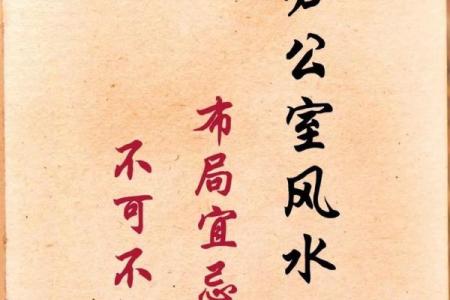 公室风水
布局宜忌
不可不